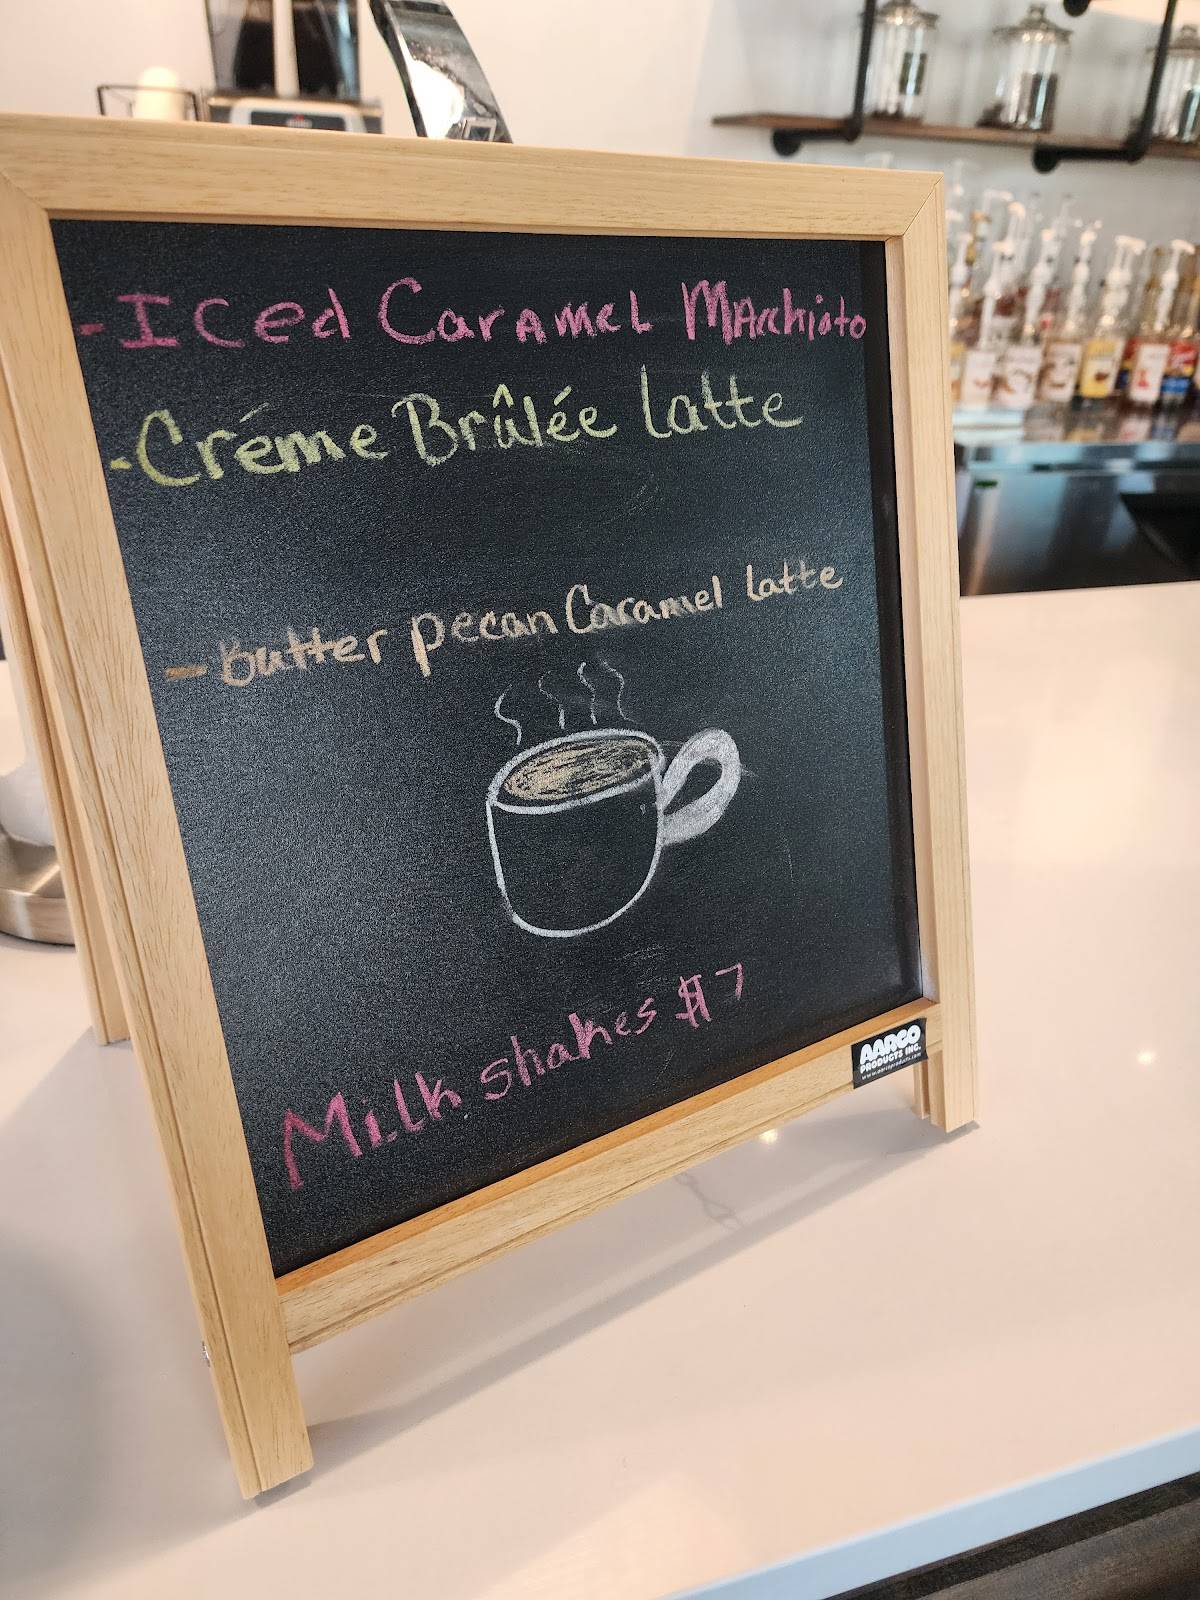 - Iced Caramel Macchiato
- Créme Brûlée Latte
- Butter pecan Caramel latte
Milk shakes $7
AARCO
PRODUCTS INC.
www.aarcoproducts.com